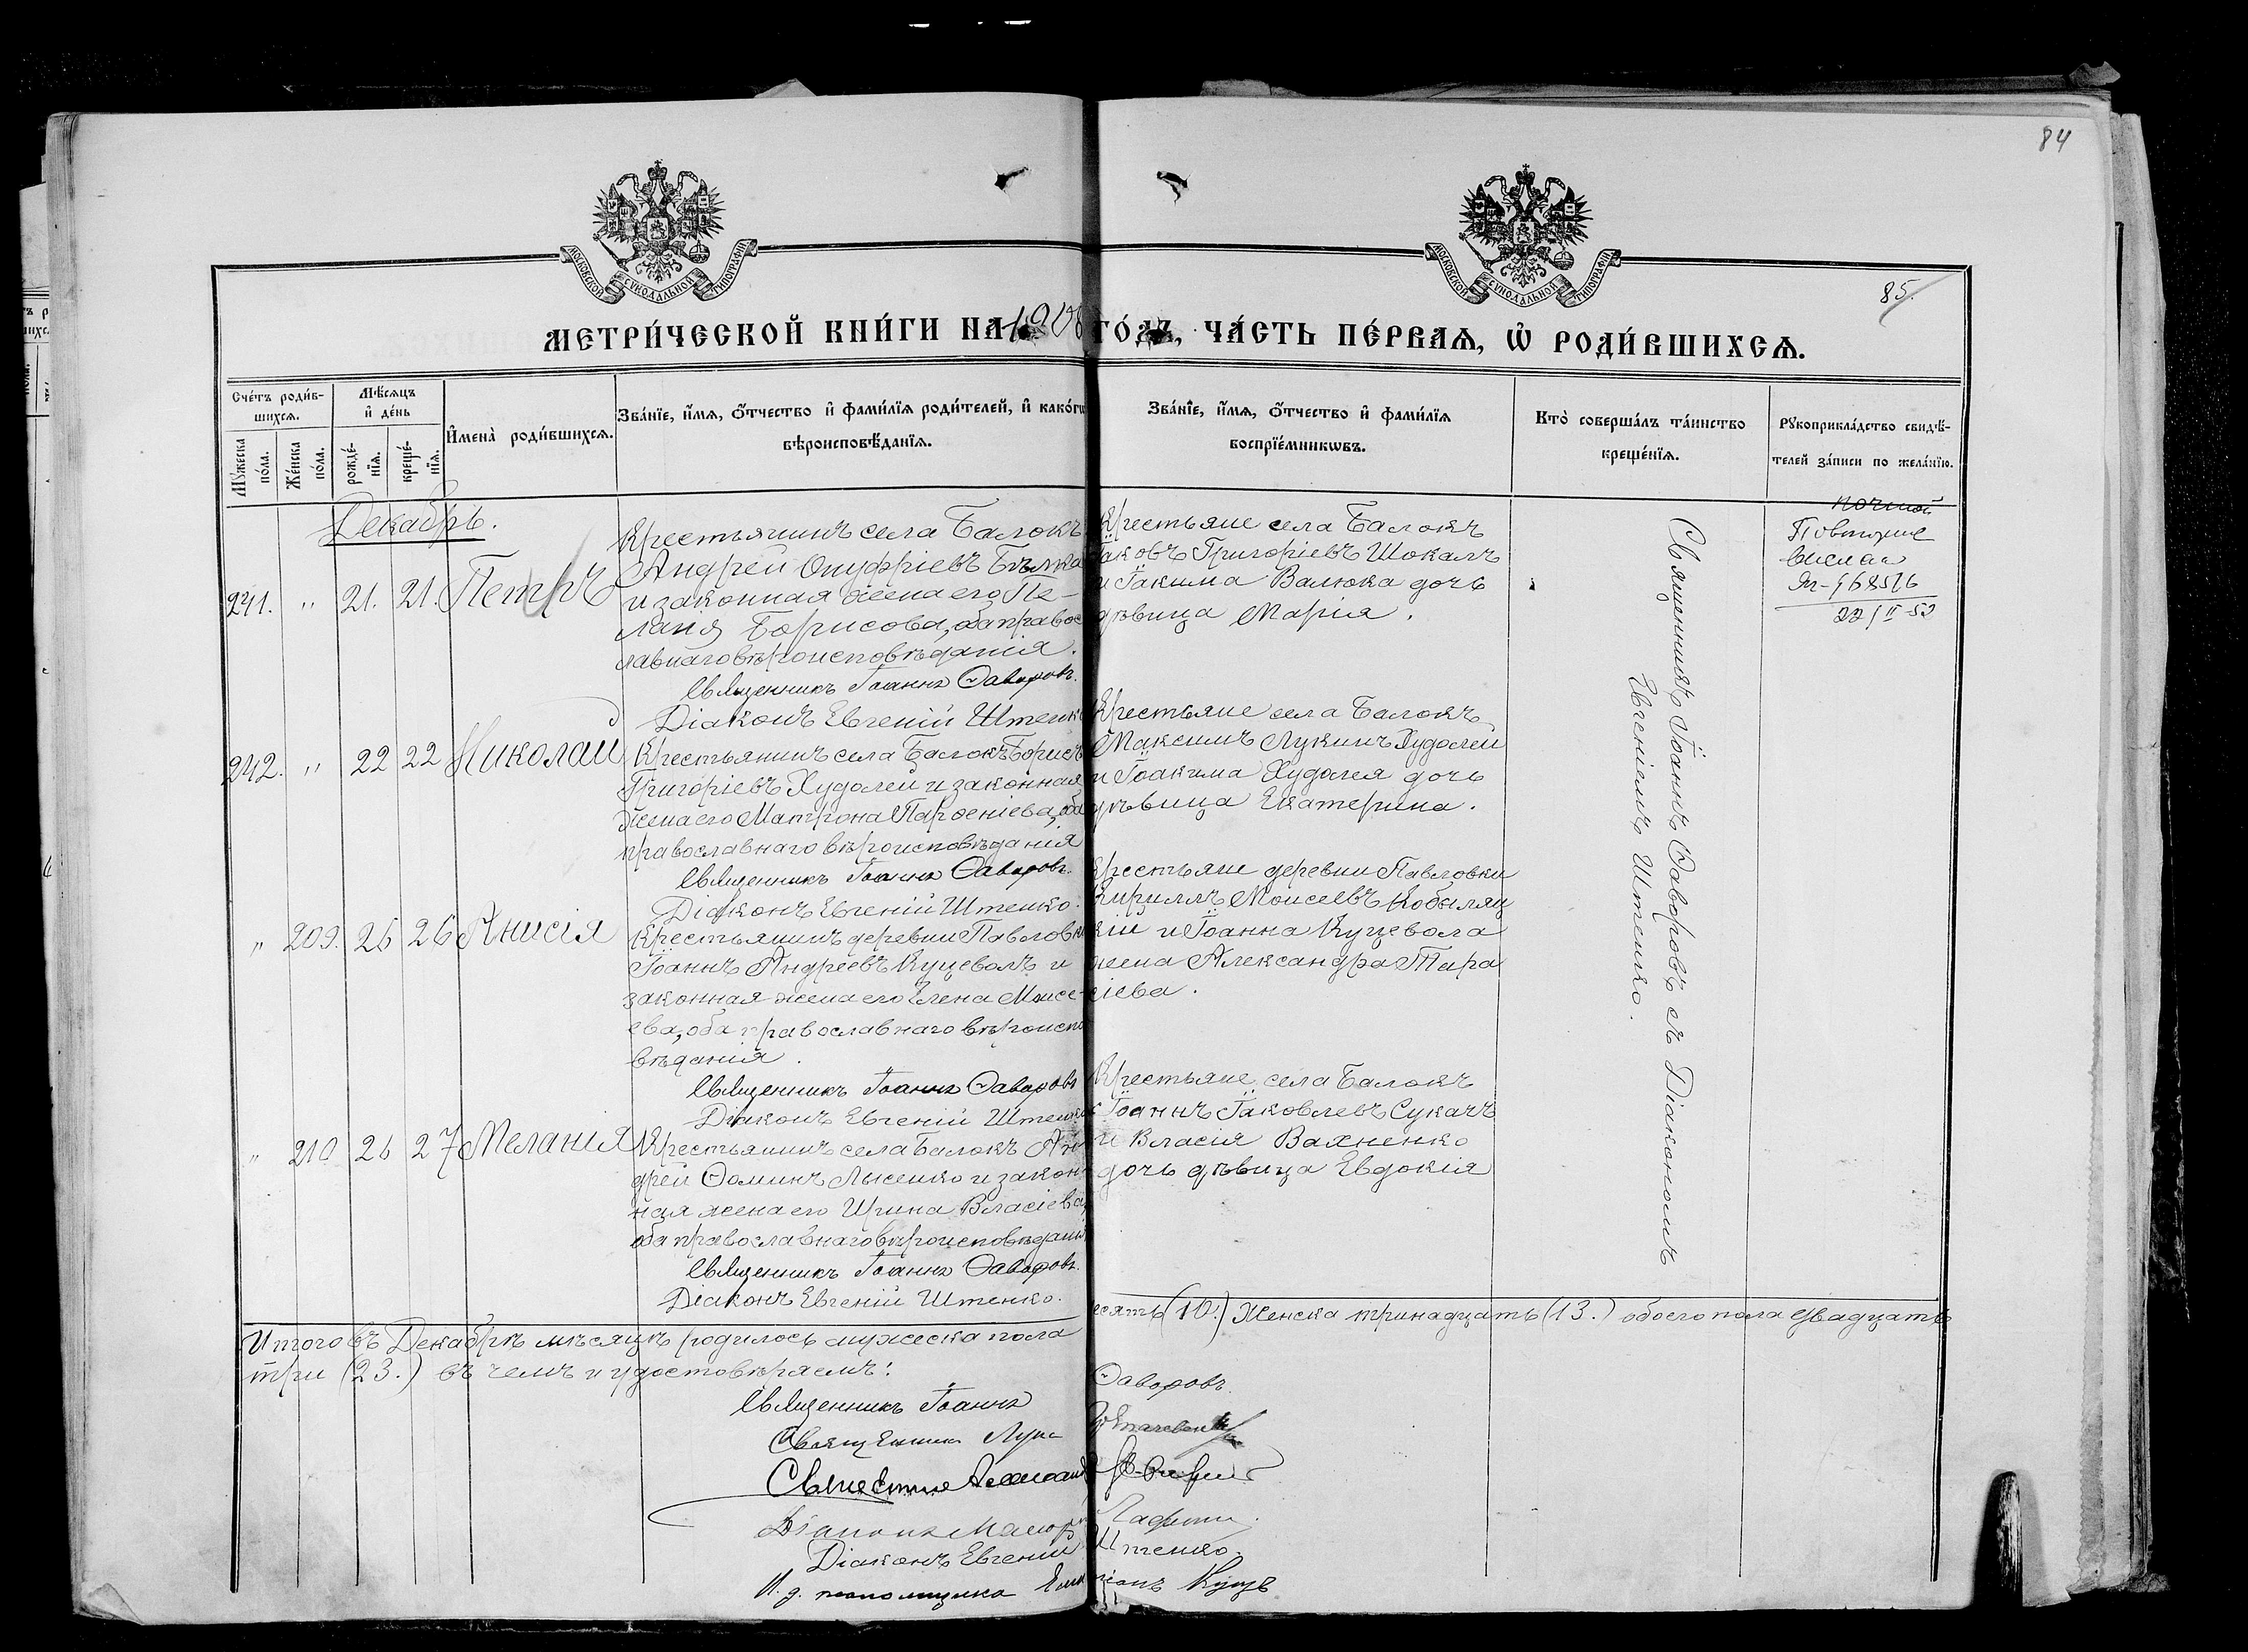 84
МОСКОВСКОЙ СѴНОДАЛЬНОЙ ТИПОГРАФІИ
МОСКОВСКОЙ СѴНОДАЛЬНОЙ ТИПОГРАФІИ
85.
МЕТРИ́ЧЕСКОЙ КНИ́ГИ НА 1908 ГО́ДЪ, ЧА́СТЬ ПЕ́РВАѦ, Ѡ҆ РОДИ́ВШИХСѦ.
Сче́тъ роди́в-
шихсѧ.
Мꙋ́жеска по́ла.
Же́нска по́ла.
Мѣ́сѧцъ
и҆ де́нь
рожде́-
нїѧ.
креще́-
нїѧ.
И҆мена̀ роди́вшихсѧ.
Зва́нїе, и҆́мѧ, ѻ҆́тчество и҆ фами́лїѧ роди́телей, и҆ како́гѡ
вѣроисповѣ́данїѧ.
Зва́нїе, и҆́мѧ, ѻ҆́тчество и҆ фами́лїѧ
воспрїе́мникѡвъ.
Кто̀ соверша́лъ та́инство
креще́нїѧ.
Рꙋкоприкла́дство свидѣ́-
телей за́писи по жела́нїю.
Декабрь.
241. " 21. 21. Петръ
Крестьянинъ села Балокъ
Андрей Онуфріевъ Бѣлка
и законная жена его Пе-
лагія Борисова, оба правос
лавнаго вѣроисповѣданія.
Священникъ Іоаннъ Ѳаворовъ.
Діаконъ Евгеній Штенко
Крестьяне села Балокъ
Іаковъ Григоріевъ Шокалъ
и Іакима Валюка дочь
дѣвица Марія.
Повторне
22/II-52
242. " 22 22 Николай
Крестьянинъ села Балокъ Борисъ
Григоріевъ Худолей и законная
жена его Матрона Парѳеніева, оба
православнаго вѣроисповѣданія
Священникъ Іоаннъ Ѳаворовъ.
Діаконъ Евгеній Штенко.
Крестьяне села Балокъ
Максимъ Лукинъ Худолей
и Іоакима Худолея дочь
дѣвица Екатерина.
" 209. 26 26 Анисія
Крестьянинъ деревни Павловки
Іоаннъ Андреевъ Куцеволъ и
законная жена его Елена Моисе-
ева, оба православнаго вѣроиспо
вѣданія.
Священникъ Іоаннъ Ѳаворовъ
Діаконъ Евгеній Штенко
Крестьяне деревни Павловки
Кириллъ Моисеевъ Кобыляц
кій и Іоанна Куцевола
жена Александра Тара
сіева.
" 210 26 27 Меланія
Крестьянинъ села Балокъ Ан
дрей Ѳоминъ Лысенко и закон
ная жена его Ирина Власіева,
оба православнаго вѣроисповѣданія
Священникъ Іоаннъ Ѳаворовъ.
Діаконъ Евгеній Штенко.
Крестьяне села Балокъ
Іоаннъ Іаковлевъ Сукачъ
и Власія Вахненко
дочь дѣвица Евдокія
Священникъ Іоаннъ Ѳаворовъ съ Діакономъ
Евгеніемъ Штенко.
Итого въ Декабрѣ мѣсяцѣ родилось мужеска пола десять (10.) женска тринадцать (13.) обоего пола двадцать
три (23.) въ чемъ и удостовѣряемъ:
Священникъ Іоаннъ Ѳаворовъ.
Священникъ Лука
Священникъ
Діаконъ
Діаконъ Евгеній Штенко.
И. д. псаломщика